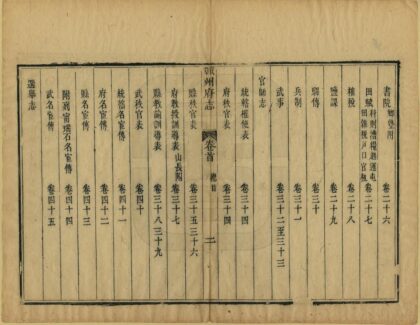 書院 鄉學附 卷二十六
田賦 卷二十七
榷稅 卷二十八
鹽課 卷二十九
驛傳 卷三十
兵制 卷三十一
武事 卷三十二至三十三
官師志
統轄 表 卷三十四
府秩官表
州府志 卷首 總目 二
縣秩官表 卷三十五 三十六
府教授訓導表 山長附 卷三十七
縣教諭訓導表 卷三十八 三十九
武秩官表 卷四十
統轄名宦傳 卷四十一
府名宦傳 卷四十二
縣名宦傳 卷四十三
附 名宦傳 卷四十四
武名宦傳 卷四十五
選舉志